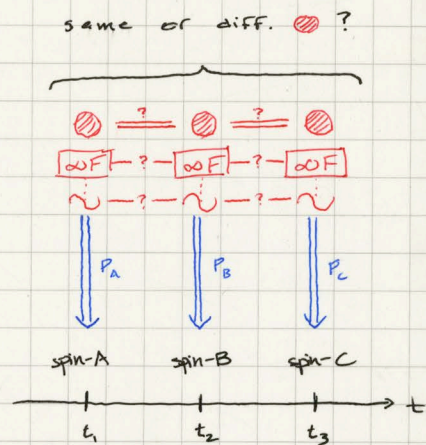 same or diff. ?
? ?
∞F - ? - ∞F - ? - ∞F
~ - ? - ~ - ? - ~
P_A P_B P_C
spin-A spin-B spin-C
t
t₁ t₂ t₃